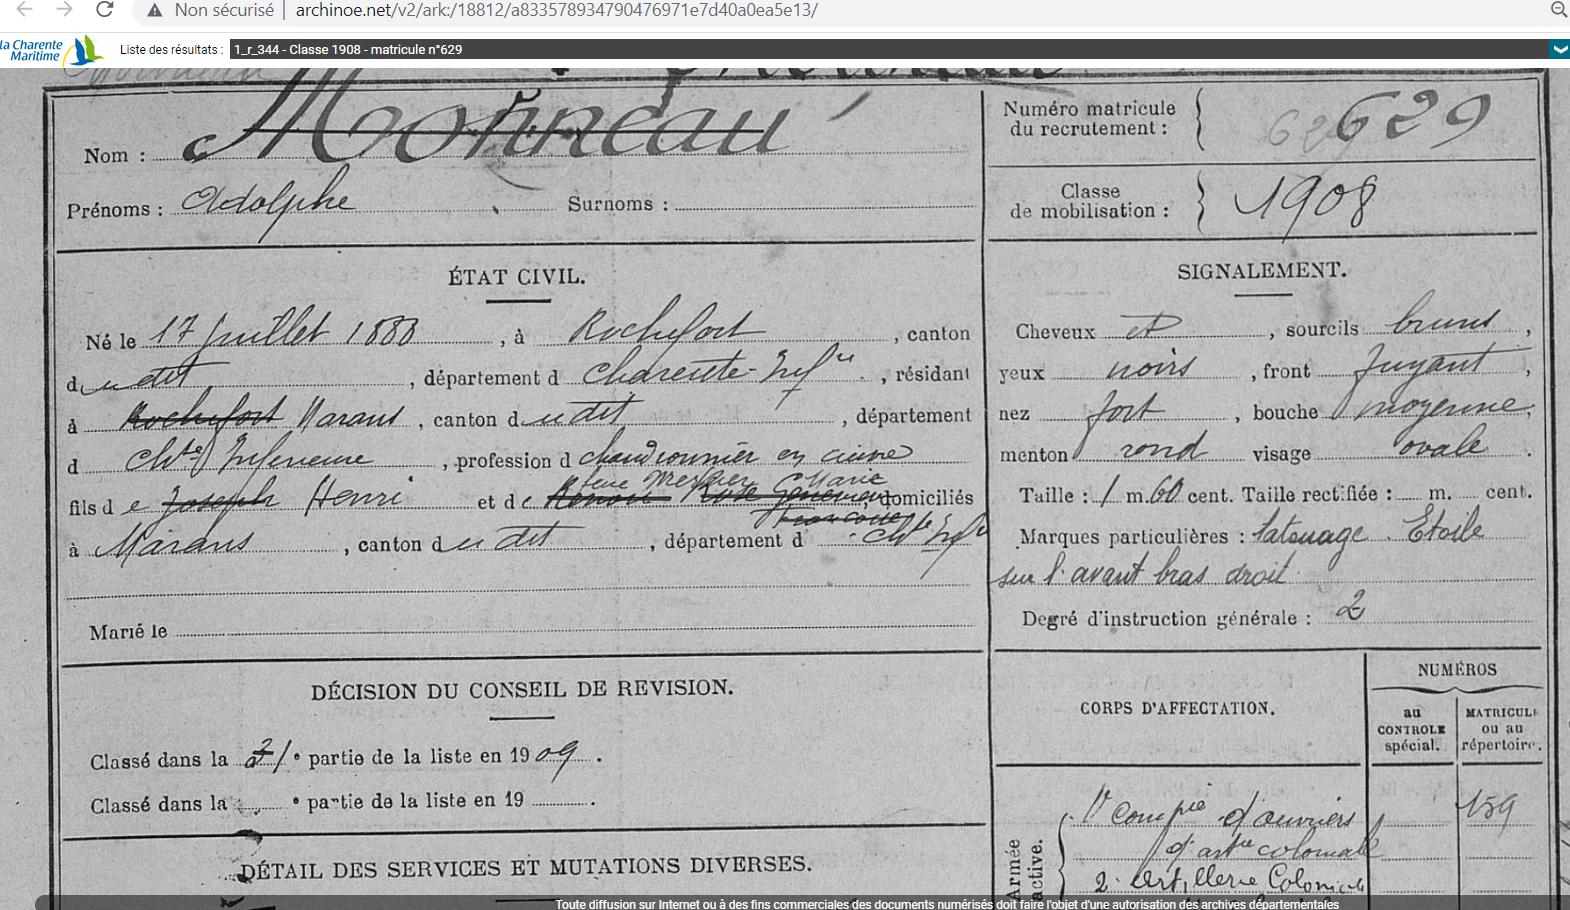 Non sécurisé | archinoe.net/v2/ark:/18812/a833578934790476971e7d40a0ea5e13/
la Charente
Maritime
Liste des résultats : 1_r_344 - Classe 1908 - matricule n°629
Nom : Monneau
Prénoms : Adolphe Surnoms :
Numéro matricule
du recrutement : 629
Classe
de mobilisation : 1908
ÉTAT CIVIL.
Né le 17 Juillet 1888, à Rochefort, canton
dudit, département d Charente-Infre, résidant
à Rochefort Marans, canton dudit, département
d Chte Inferieure, profession d chaudronnier en cuivre
fils de Joseph Henri et de domiciliés
à Marans, canton dudit, département d Chte Infre
Marié le
SIGNALEMENT.
Cheveux et, sourcils bruns,
yeux noirs, front fuyant,
nez fort, bouche moyenne,
menton rond visage ovale.
Taille : 1 m. 60 cent. Taille rectifiée : m. cent.
Marques particulières : tatouage. Etoile
sur l'avant bras droit.
Degré d'instruction générale : 2
DÉCISION DU CONSEIL DE REVISION.
Classé dans la 1e partie de la liste en 1909.
Classé dans la e partie de la liste en 19 .
DÉTAIL DES SERVICES ET MUTATIONS DIVERSES.
CORPS D'AFFECTATION.
NUMÉROS
au
CONTROLE
spécial.
MATRICULE
ou au
répertoire.
Armée
active.
Compie d'ouvriers 159
d'artie coloniale
2e Artillerie Coloniale
Toute diffusion sur Internet ou à des fins commerciales des documents numérisés doit faire l'objet d'une autorisation des archives départementales